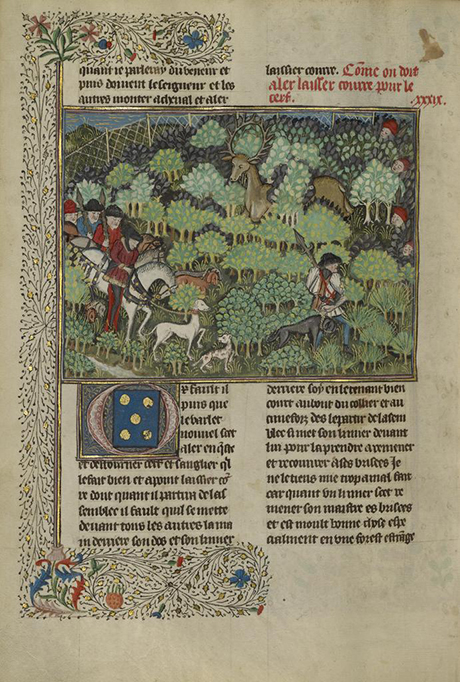 quant ie parleray du veneur et
puis doivent le seigneur et les
autres monter a cheval et aler
laissier courre. Cõme on doit
aler laisser courre pour le
cerf. .xxxix.
Or fault il
puis que
le varlet
nouuel scet
aler en q̃ste
et destourner cerf et sanglier q̃l
le sache bien et a point laissier
dont quant il partira de las
semblee il fault quil se mette
deuant tous les autres la ma
in derriere son dos et son limier
derriere soy en le tenant bien
court au bout du collier et au
cunefoiz des le partir de lasem
blee si met son limier deuant
lui pour la prendre a remener
et recouurer a ses brisees Je
ne le tiens mie trop a mal fait
car quant vn limier scet re
mener son maistre es brisees
et est moult bonne chose espe
cialment en vne forest estrãge